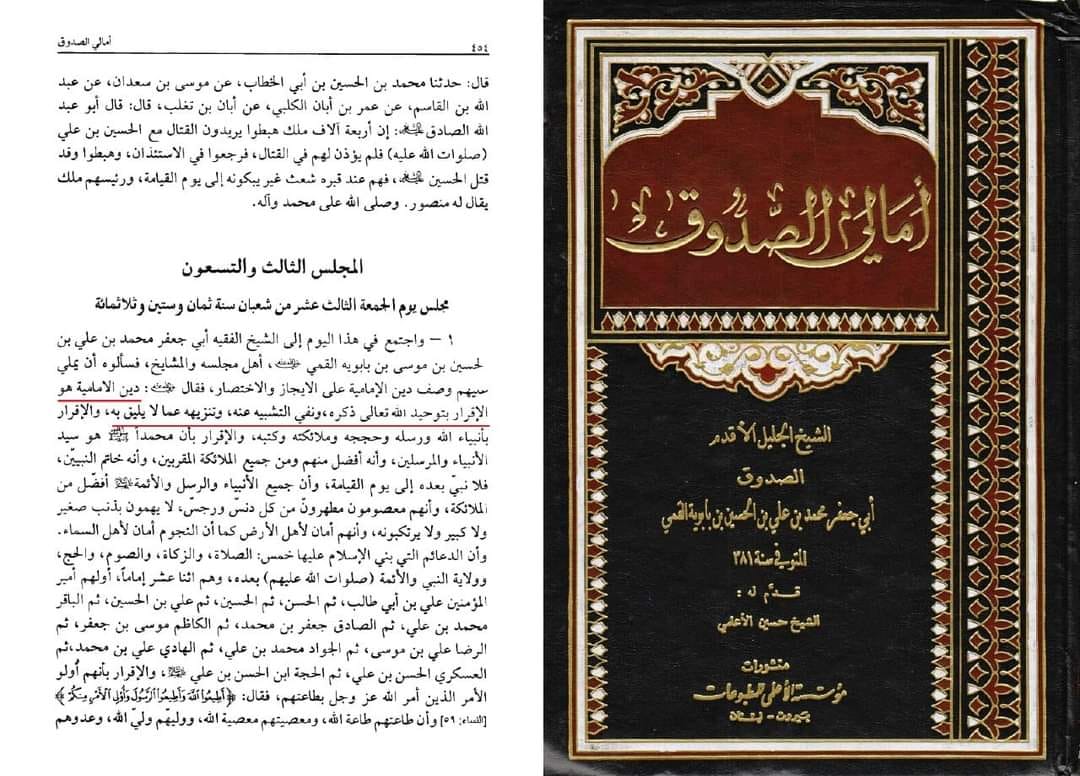 أمالي الصدوق
٤٥٤
قال: حدثنا محمد بن الحسين بن أبي الخطاب، عن موسى بن سعدان، عن عبد
الله بن القاسم، عن عمر بن أبان الكلبي، عن أبان بن تغلب، قال: قال أبو عبد
الله الصادق عليه السلام: إن أربعة آلاف ملك هبطوا يريدون القتال مع الحسين بن علي
(صلوات الله عليه) فلم يؤذن لهم في القتال، فرجعوا في الاستئذان، وهبطوا وقد
قتل الحسين عليه السلام، فهم عند قبره شعث غبر يبكونه إلى يوم القيامة، ورئيسهم ملك
يقال له منصور. وصلى الله على محمد وآله.
المجلس الثالث والتسعون
مجلس يوم الجمعة الثالث عشر من شعبان سنة ثمان وستين وثلاثمائة
١ – واجتمع في هذا اليوم إلى الشيخ الفقيه أبي جعفر محمد بن علي بن
لحسين بن موسى بن بابويه القمي، أهل مجلسه والمشايخ، فسألوه أن يملي
عليهم وصف دين الإمامية على الايجاز والاختصار، فقال: دين الامامية هو
الإقرار بتوحيد الله تعالى ذكره، ونفي التشبيه عنه، وتنزيهه عما لا يليق به، والإقرار
بأنبياء الله ورسله وحججه وملائكته وكتبه، والإقرار بأن محمداً ﷺ هو سيد
الأنبياء والمرسلين، وأنه أفضل منهم ومن جميع الملائكة المقربين، وأنه خاتم النبيين،
فلا نبيّ بعده إلى يوم القيامة، وأن جميع الأنبياء والرسل والأئمة أفضل من
الملائكة، وأنهم معصومون مطهرون من كل دنس ورجس، لا يهمون بذنب صغير
ولا كبير ولا يرتكبونه، وأنهم أمان لأهل الأرض كما أن النجوم أمان لأهل السماء.
وأن الدعائم التي بني الإسلام عليها خمس: الصلاة، والزكاة، والصوم، والحج،
وولاية النبي والأئمة (صلوات الله عليهم) بعده، وهم اثنا عشر إماماً، أولهم أمير
المؤمنين علي بن أبي طالب، ثم الحسن، ثم الحسين، ثم علي بن الحسين، ثم الباقر
محمد بن علي، ثم الصادق جعفر بن محمد، ثم الكاظم موسى بن جعفر، ثم
الرضا علي بن موسى، ثم الجواد محمد بن علي، ثم الهادي علي بن محمد، ثم
العسكري الحسن بن علي، ثم الحجة ابن الحسن بن علي، والإقرار بأنهم أولو
الأمر الذين أمر الله عز وجل بطاعتهم، فقال: ﴿أَطِيعُوا اللَّهَ وَأَطِيعُوا الرَّسُولَ وَأُوْلِي الْأَمْرِ مِنكُمْ﴾
[النساء: ٥٩] وأن طاعتهم طاعة الله، ومعصيتهم معصية الله، ووليهم وليّ الله، وعدوهم
أمالي الصدوق
الشيخ الجليل الأقدم
الصدوق
أبي جعفر محمد بن علي بن الحسين بن بابويه القمي
المتوفى سنة ٣٨١
قدم له:
الشيخ حسين الأعلمي
منشورات
مؤسسة الأعلمي للمطبوعات
بيروت - لبنان